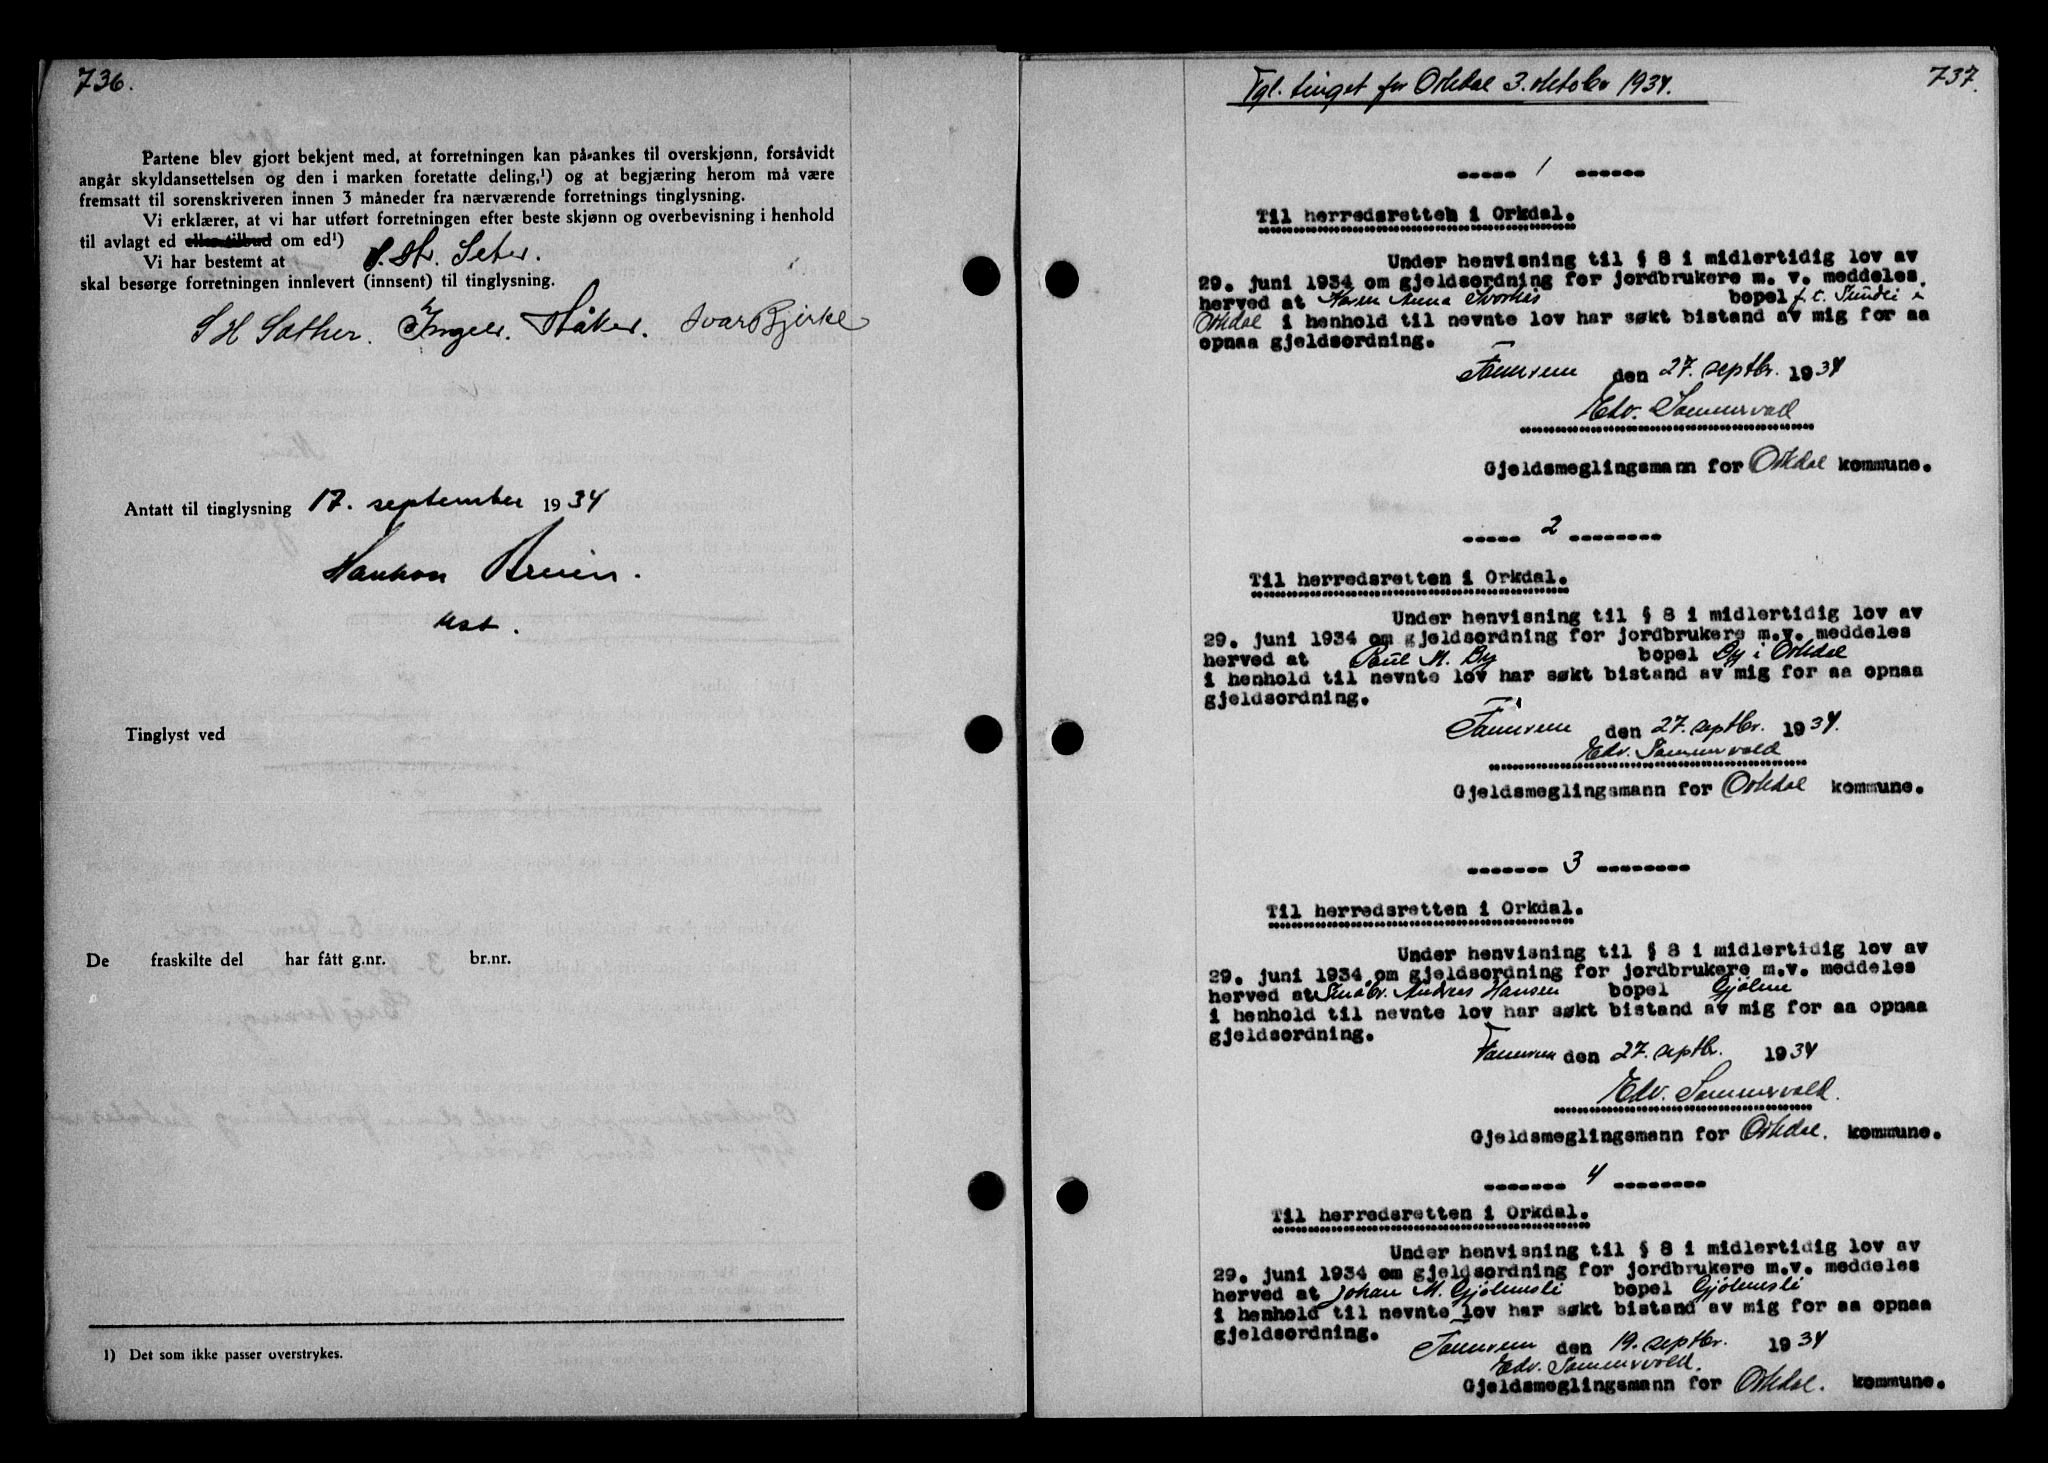 736.
Partene blev gjort bekjent med, at forretningen kan på-ankes til overskjønn, forsåvidt
angår skyldansettelsen og den i marken foretatte deling,¹) og at begjæring herom må være
fremsatt til sorenskriveren innen 3 måneder fra nærværende forretnings tinglysning.
Vi erklærer, at vi har utført forretningen efter beste skjønn og overbevisning i henhold
til avlagt ed eller tilbud om ed¹)
Vi har bestemt at S. H. Seter.
skal besørge forretningen innlevert (innsent) til tinglysning.
S H Sæther. Ingebr. Håker. Ivar Bjerke
Antatt til tinglysning 17. september 1934
Haakon Breien.
kst.
Tinglyst ved
De fraskilte del har fått g.nr. br.nr.
1) Det som ikke passer overstrykes.
737.
Fgl. tinget for Orkdal 3. oktober 1934.
----- 1 ------
Til herredsretten i Orkdal.
Under henvisning til § 8 i midlertidig lov av
29. juni 1934 om gjeldsordning for jordbrukere m. v. meddeles
herved at Karen Anna bopel i
Orkdal i henhold til nevnte lov har søkt bistand av mig for aa
opnaa gjeldsordning.
Fannrem den 27. septbr. 1934
Edv. Sommervold
Gjeldsmeglingsmann for Orkdal kommune.
----- 2 --------
Til herredsretten i Orkdal.
Under henvisning til § 8 i midlertidig lov av
29. juni 1934 om gjeldsordning for jordbrukere m.v. meddeles
herved at Paul M. By bopel By i Orkdal
i henhold til nevnte lov har søkt bistand av mig for aa opnaa
gjeldsordning.
Fannrem den 27. septbr. 1934.
Edv. Sommervold
Gjeldsmeglingsmann for Orkdal kommune.
------- 3 --------
Til herredsretten i Orkdal.
Under henvisning til § 8 i midlertidig lov av
29. juni 1934 om gjeldsordning for jordbrukere m.v. meddeles
herved at Småbr. Andreas Hansen bopel Gjølme
i henhold til nevnte lov har søkt bistand av mig for aa opnaa
gjeldsordning.
Fannrem den 27. septbr. 1934
Edv. Sommervold.
Gjeldsmeglingsmann for Orkdal. kommune.
------- 4 --------
Til herredsretten i Orkdal.
Under henvisning til § 8 i midlertidig lov av
29. juni 1934 om gjeldsordning for jordbrukere m.v. meddeles
herved at Johan M. Gjølmesli bopel Gjølmesli
i henhold til nevnte lov har søkt bistand av mig for aa opnaa
gjeldsordning.
Fannrem den 19. septbr. 1934
Edv. Sommervold.
Gjeldsmeglingsmann for Orkdal. kommune.